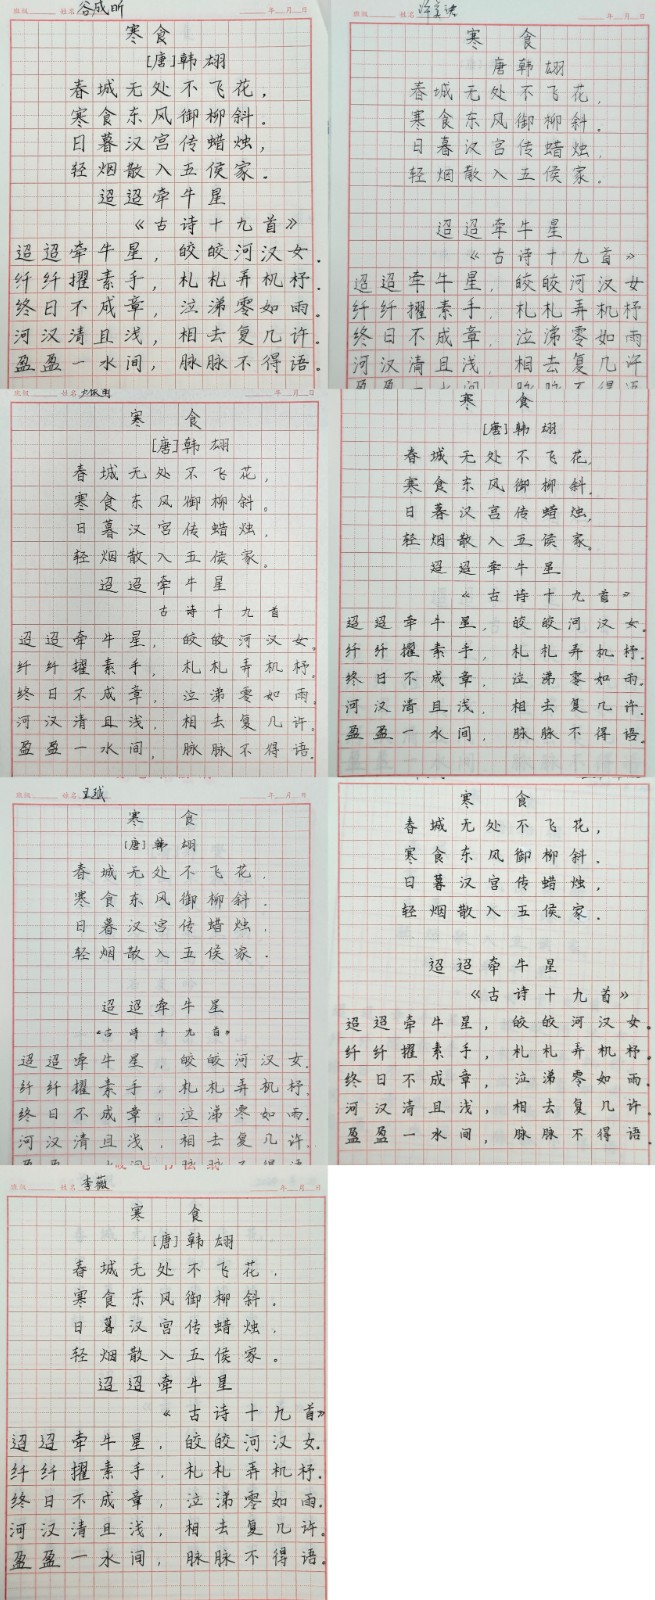 班级 姓名 谷成昕 年 月 日
寒食
[唐]韩翃
春城无处不飞花，
寒食东风御柳斜。
日暮汉宫传蜡烛，
轻烟散入五侯家。
迢迢牵牛星
《古诗十九首》
迢迢牵牛星，皎皎河汉女。
纤纤擢素手，札札弄机杼。
终日不成章，泣涕零如雨。
河汉清且浅，相去复几许。
盈盈一水间，脉脉不得语。
班级 姓名 年 月 日
寒食
唐韩翃
春城无处不飞花，
寒食东风御柳斜。
日暮汉宫传蜡烛，
轻烟散入五侯家。
迢迢牵牛星
《古诗十九首》
迢迢牵牛星，皎皎河汉女
纤纤擢素手，札札弄机杼
终日不成章，泣涕零如雨
河汉清且浅，相去复几许
盈盈一水间，脉脉不得语
班级 姓名 年 月 日
寒食
[唐]韩翃
春城无处不飞花，
寒食东风御柳斜。
日暮汉宫传蜡烛，
轻烟散入五侯家。
迢迢牵牛星
古诗十九首
迢迢牵牛星，皎皎河汉女。
纤纤擢素手，札札弄机杼。
终日不成章，泣涕零如雨。
河汉清且浅，相去复几许。
盈盈一水间，脉脉不得语。
寒食
[唐]韩翃
春城无处不飞花，
寒食东风御柳斜。
日暮汉宫传蜡烛，
轻烟散入五侯家。
迢迢牵牛星
《古诗十九首》
迢迢牵牛星，皎皎河汉女。
纤纤擢素手，札札弄机杼。
终日不成章，泣涕零如雨。
河汉清且浅，相去复几许。
盈盈一水间，脉脉不得语。
班级 姓名 王珹 年 月 日
寒食
[唐]韩翃
春城无处不飞花，
寒食东风御柳斜．
日暮汉宫传蜡烛，
轻烟散入五侯家．
迢迢牵牛星
《古诗十九首》
迢迢牵牛星，皎皎河汉女．
纤纤擢素手，札札弄机杼．
终日不成章，泣涕零如雨．
河汉清且浅，相去复几许．
盈盈一水间，脉脉不得语
寒食
春城无处不飞花，
寒食东风御柳斜．
日暮汉宫传蜡烛，
轻烟散入五侯家．
迢迢牵牛星
《古诗十九首》
迢迢牵牛星，皎皎河汉女．
纤纤擢素手，札札弄机杼．
终日不成章，泣涕零如雨．
河汉清且浅，相去复几许．
盈盈一水间，脉脉不得语．
班级 姓名 李薇 年 月 日
寒食
[唐]韩翃
春城无处不飞花，
寒食东风御柳斜。
日暮汉宫传蜡烛，
轻烟散入五侯家。
迢迢牵牛星
《古诗十九首》
迢迢牵牛星，皎皎河汉女．
纤纤擢素手，札札弄机杼．
终日不成章，泣涕零如雨．
河汉清且浅，相去复几许．
盈盈一水间，脉脉不得语．